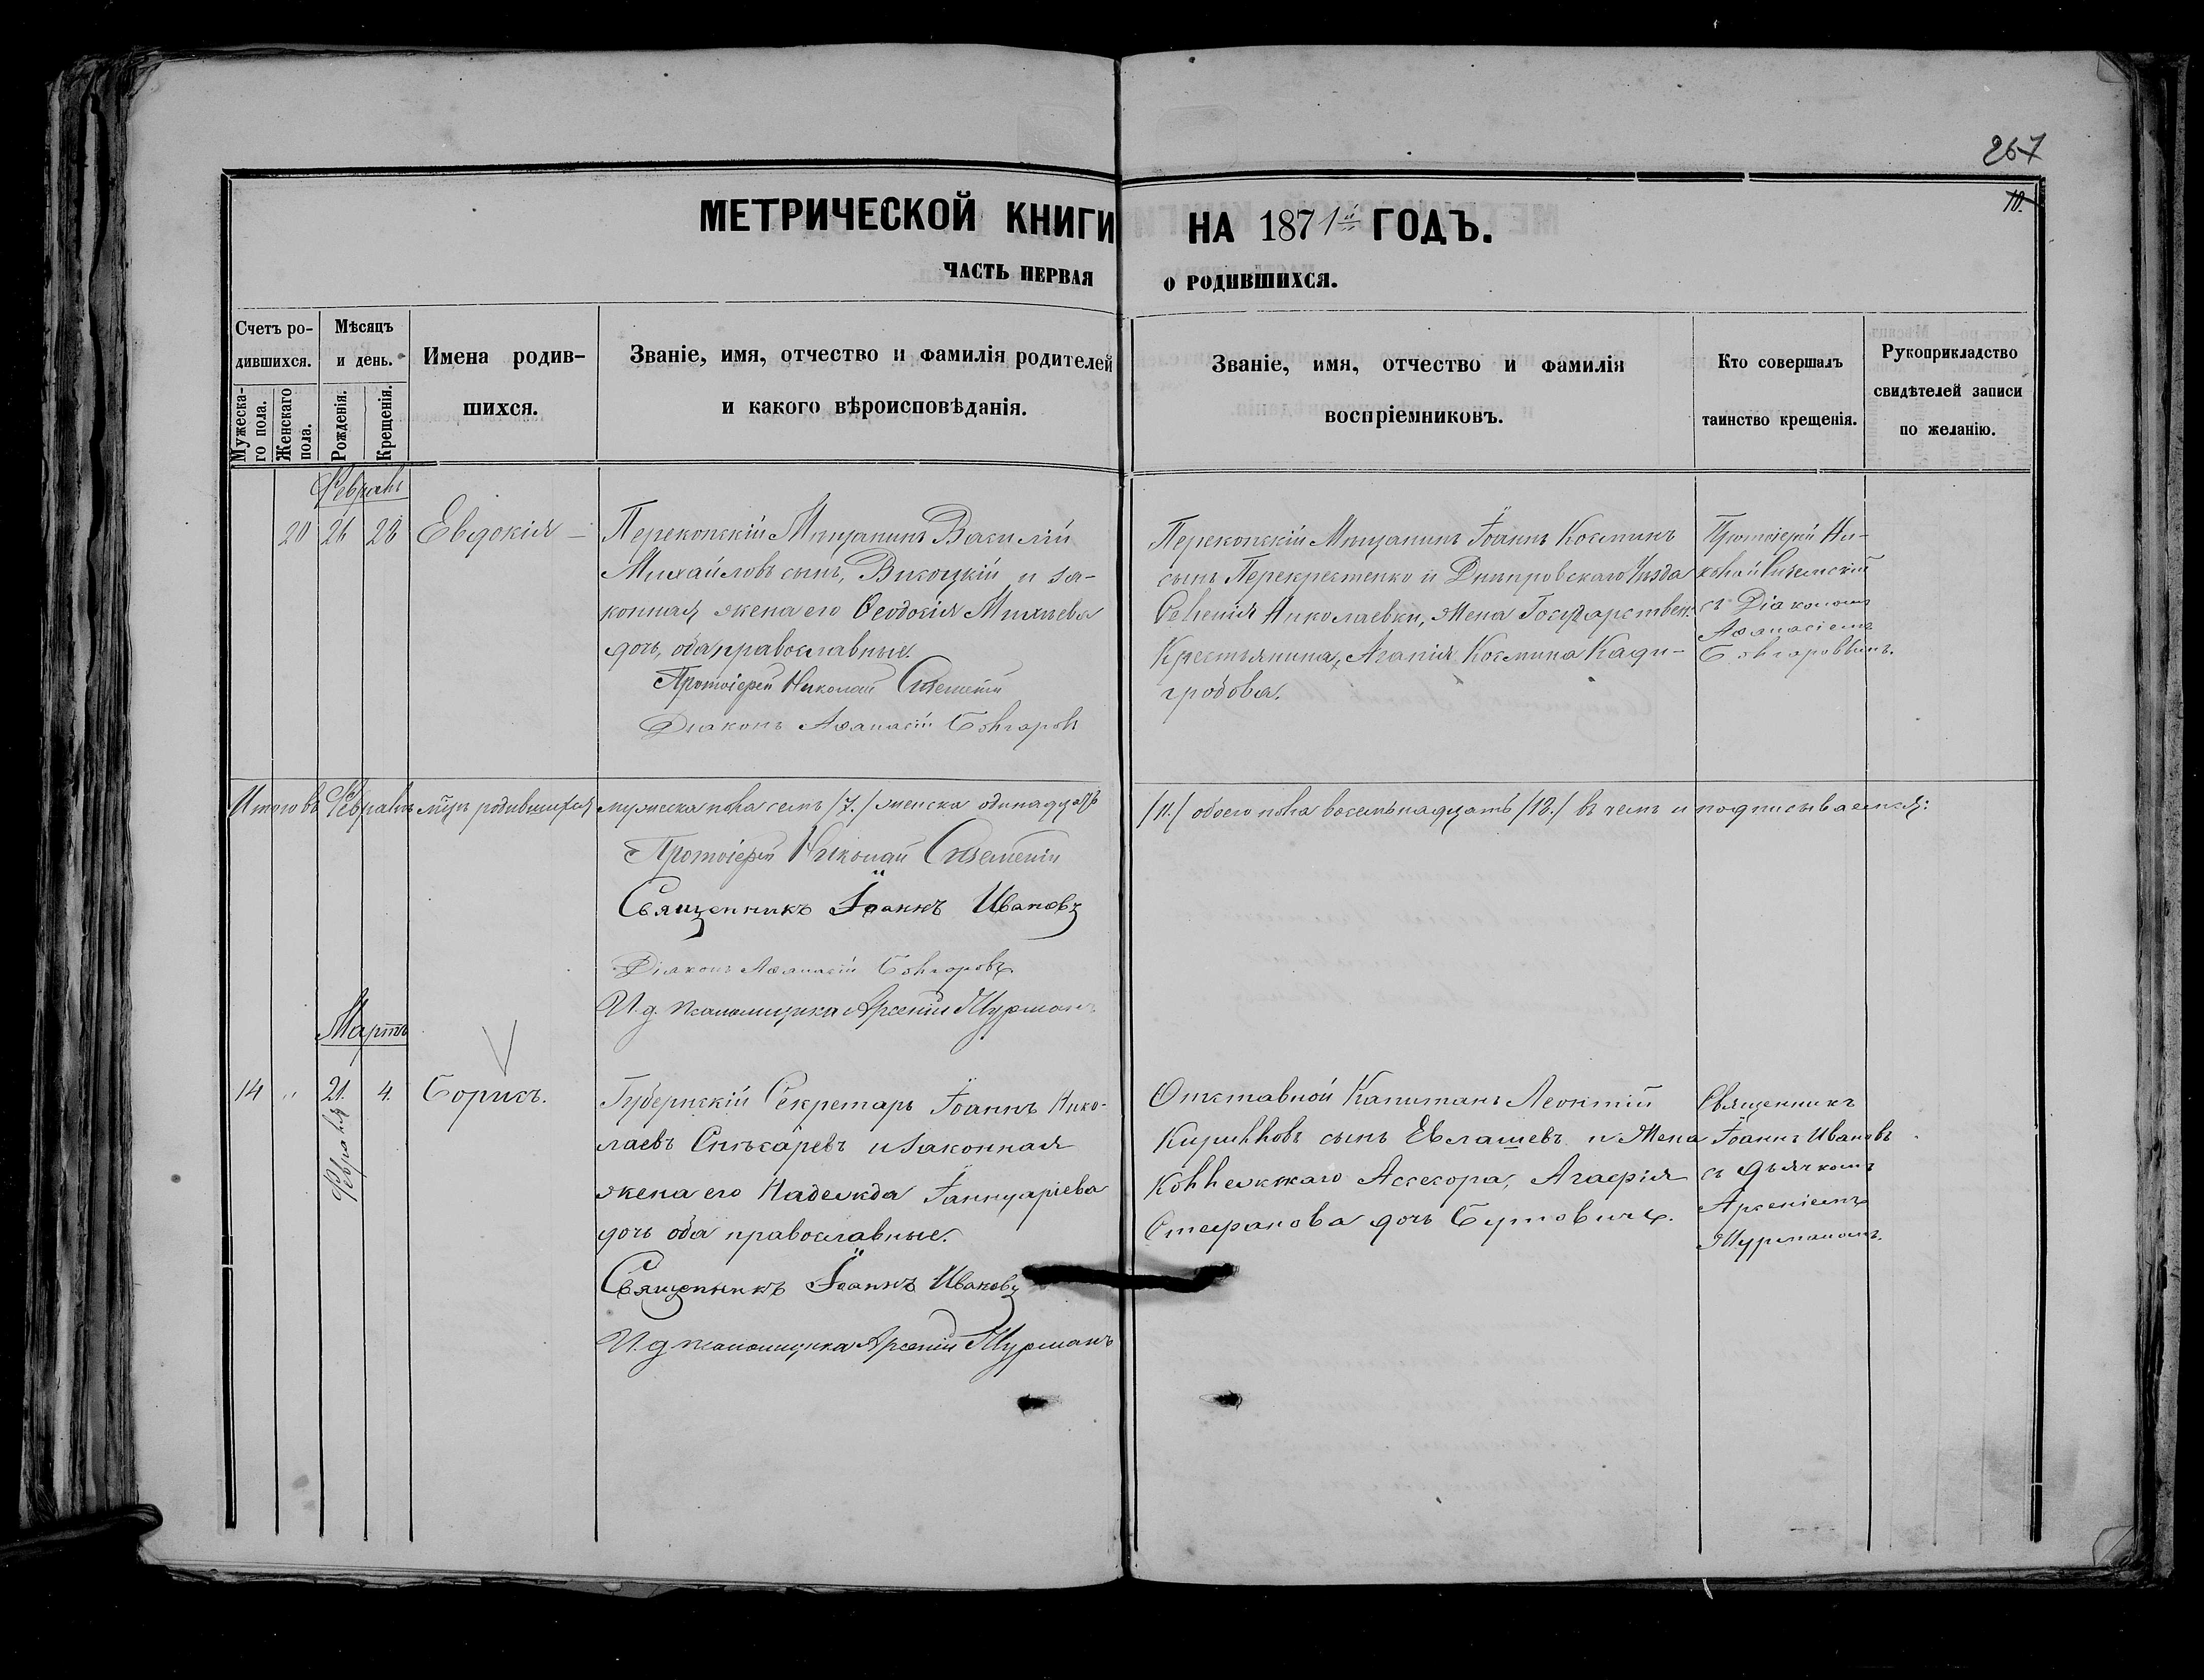 267
10.
МЕТРИЧЕСКОЙ КНИГИ НА 1871й ГОДЪ.
ЧАСТЬ ПЕРВАЯ О РОДИВШИХСЯ.
Счетъ ро-
дившихся.
Мужеска-
го пола.
Женскаго
пола.
Мѣсяцъ
и день.
Рожденія.
Крещенія.
Имена родив-
шихся.
Званіе, имя, отчество и фамилія родителей
и какого вѣроисповѣданія.
Званіе, имя, отчество и фамилія
воспріемниковъ.
Кто совершалъ
таинство крещенія.
Рукоприкладство
свидѣтелей записи
по желанію.
Февраль
20 26 28 Евдокія
Перекопскій Мѣщанинъ Василій
Михайловъ сынъ, Висоцкій и за-
конная жена его Ѳеодосія Михѣева
дочь, оба православные.
Протоіерей Николай
Діаконъ Аѳанасій Болгаровъ
Перекопскій Мѣщанинъ Іоаннъ Косминъ
сынъ Перекрестенко и Днѣпровскаго Уѣзда
Селенія Николаевки, жена Государствен.
Крестьянина, Агапія Космина Кади-
гробова.
Протоіерей Ни-
колай
съ Діакономъ
Аѳанасіемъ
Болгаровымъ.
Итого въ Февралѣ м-цѣ родившихся мужеска пола семь /7./ женска одинадцать
/11./ обоего пола восемьнадцать /18./ въ чемъ и подписываемся:
Протоіерей Николай
Священникъ Іоаннъ Ивановъ
Діаконъ Аѳанасій Болгаровъ
И. д. псаломщика Арсеній Шурманъ
Мартъ
14 " 21. 4. Борисъ.
Февраля
Губернскій Секретарь Іоаннъ Нико-
лаевъ Снѣсаревъ и законная
жена его Надежда Іаннуаріева
дочь оба православные.
Священникъ Іоаннъ Ивановъ
И д псаломщика Арсеній Шурманъ
Отставной Капитанъ Леонтій
Кирилловъ сынъ Евлашевъ и жена
Коллежкаго Ассесора, Агафія
Стефанова дочь Бутовичъ.
Священникъ
Іоаннъ Ивановъ
съ дьячкомъ
Арсеніемъ
Шурманомъ.